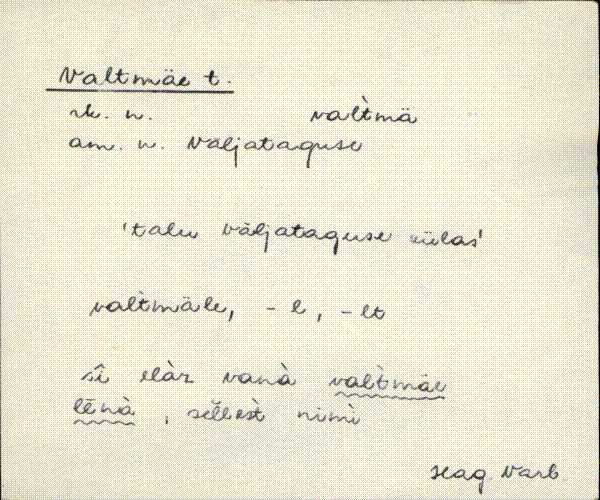 Valtmäe t.
rk. n. valt̀mä
am. n. Väljataguse
'talu Väljataguse külas'
valt̀mäle, - l, - lt
sî elàz vanà valt̀mäe
lēnà, sellest̀ nimì
Hag. Varb.